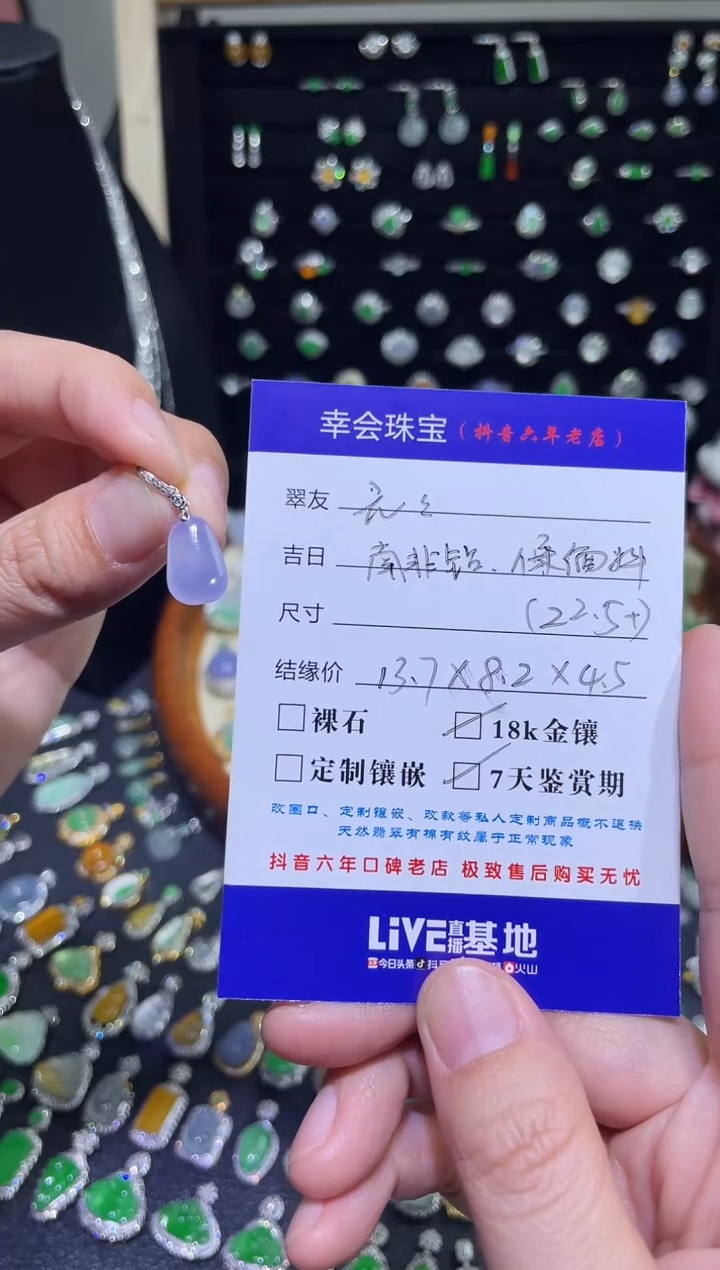 幸会珠宝(抖音六年老店)
翠友
吉日 南非钻、保值料
尺寸 (22.5+)
结缘价 13.7×8.2×4.5
□裸石 □18k金镶
□定制镶嵌 □7天鉴赏期
改圈口、定制镶嵌、改款等私人定制商品概不退换
天然翡翠有棉有纹属于正常现象
抖音六年口碑老店 极致售后购买无忧
LiVE直播基地
今日头条 抖 火山